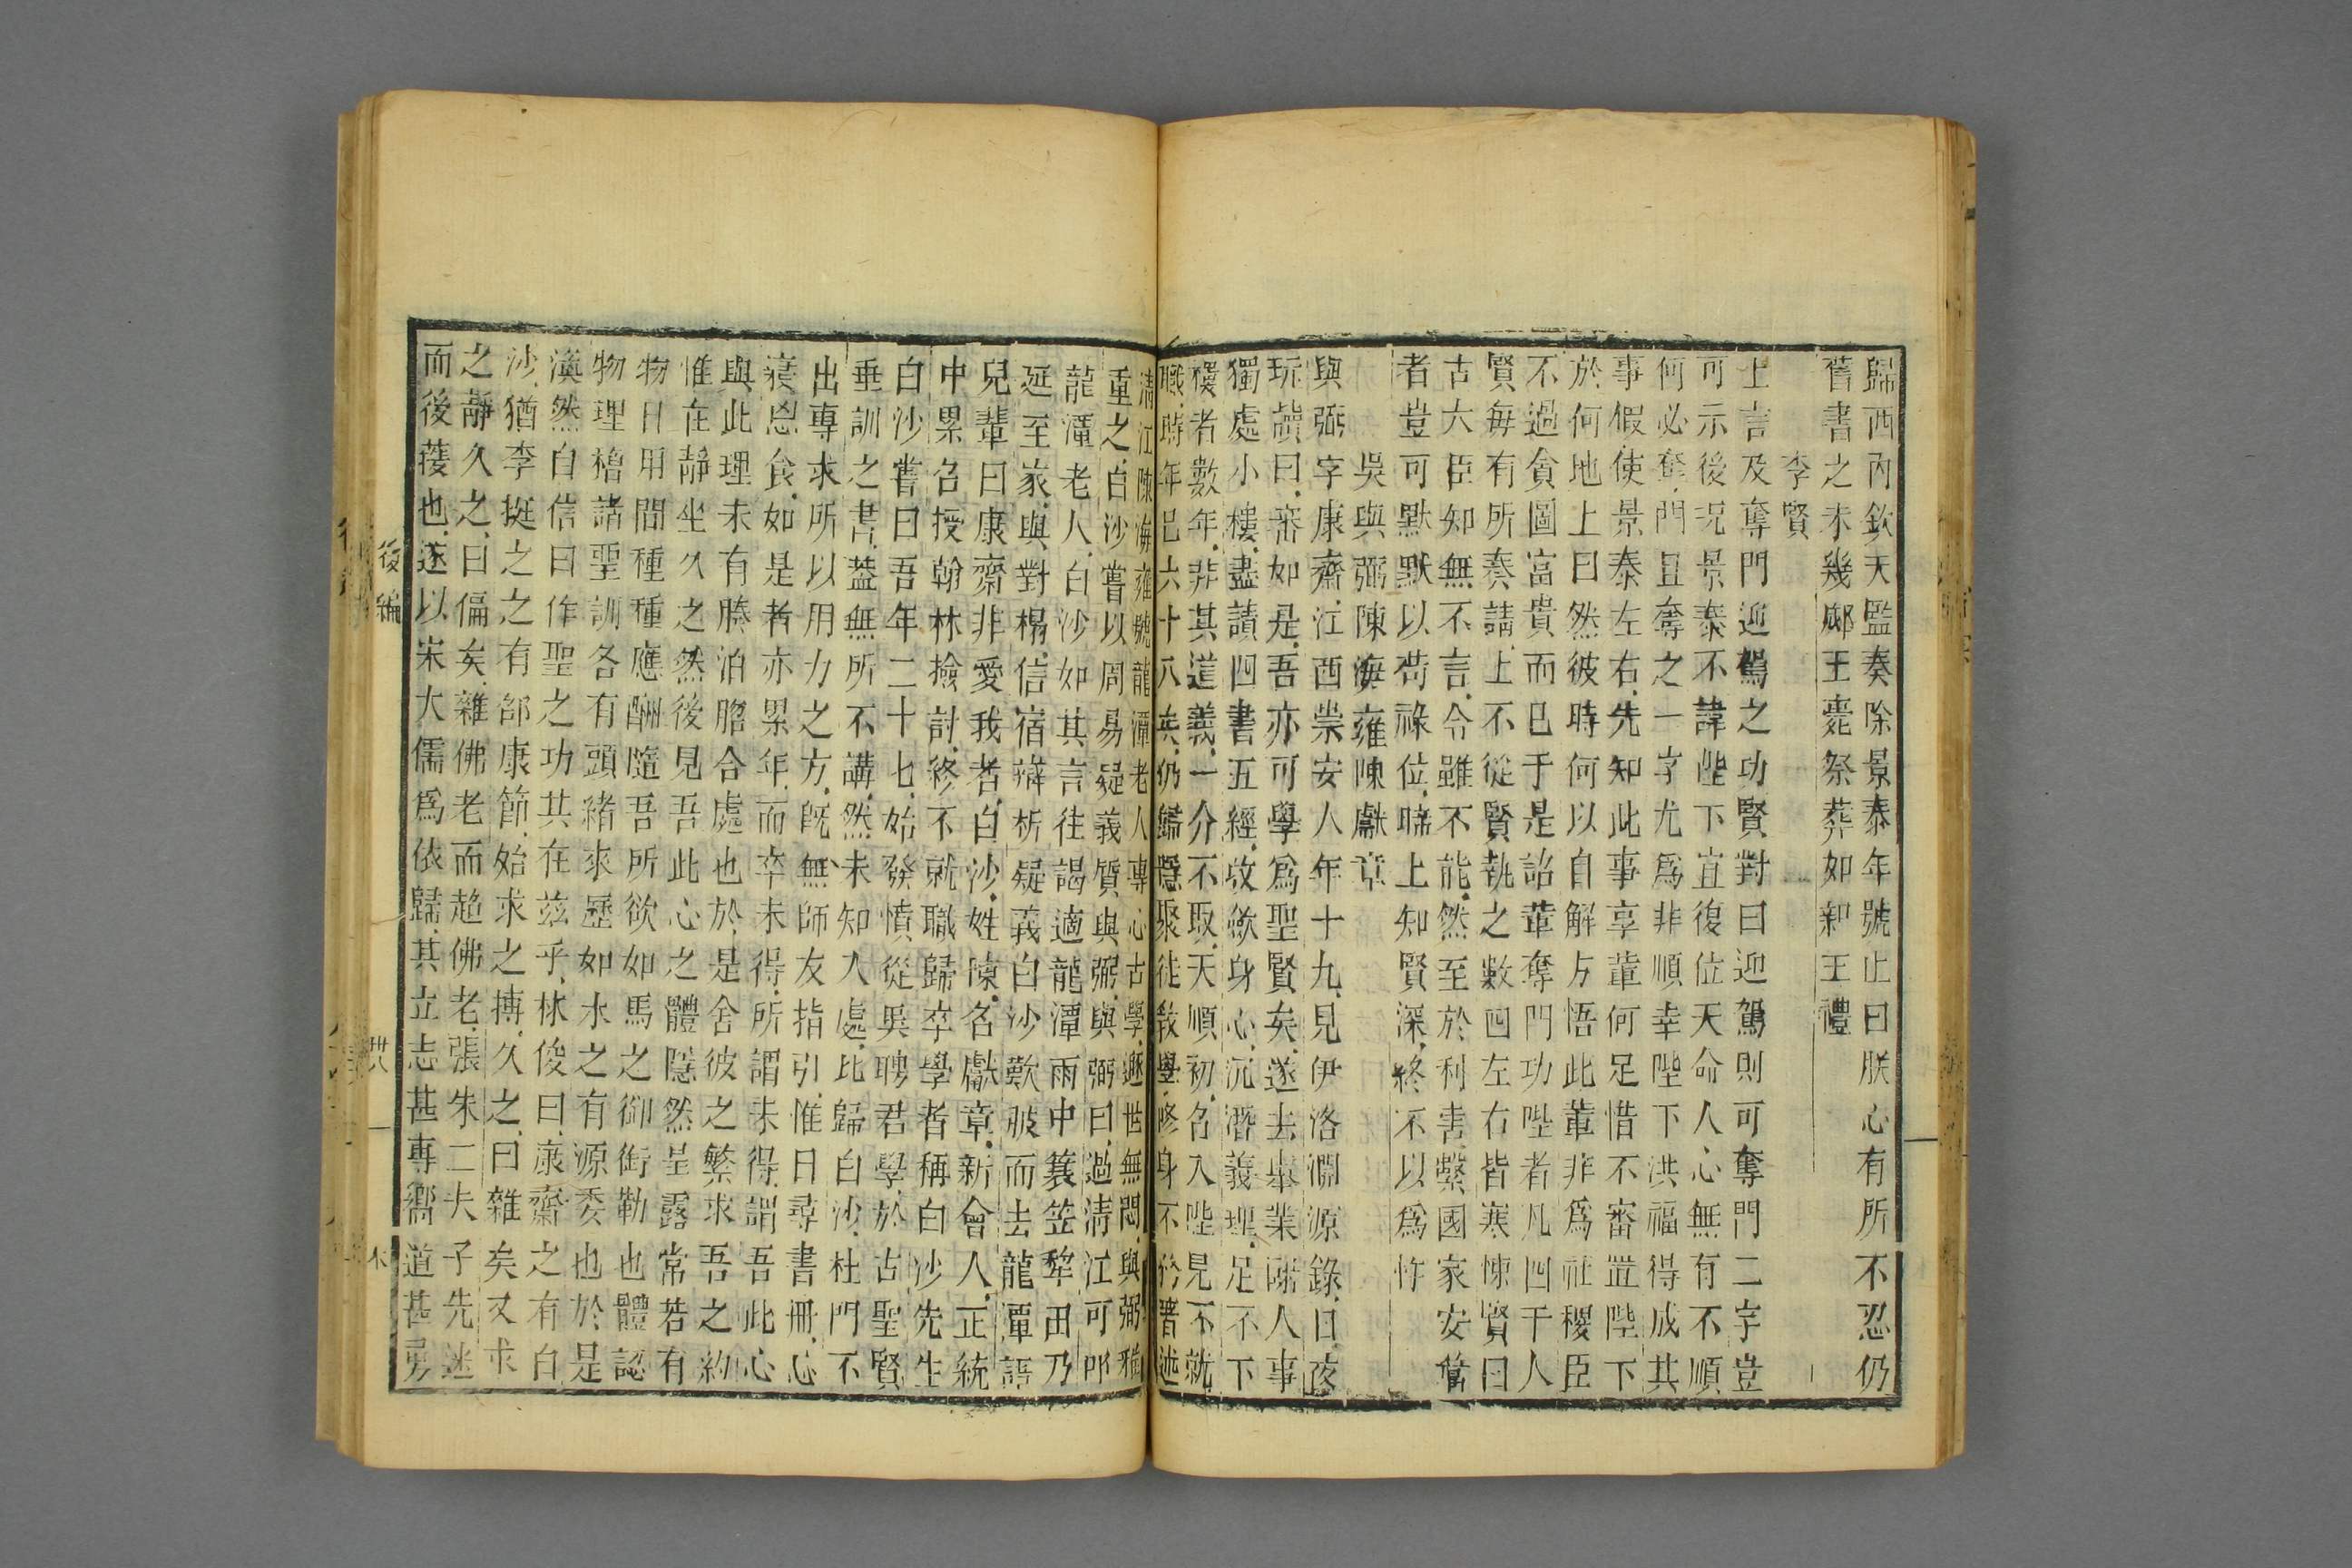 歸西內欽天監奏除景泰年號止曰朕心有所不忍仍
舊書之未幾郕王薨祭葬如親王禮
李賢
上言及奪門迎駕之功賢對曰迎駕則可奪門二字豈
可示後况景泰不諱陛下宜復位天命人心無有不順
何必奪門且奪之一字尤爲非順幸陛下洪福得成其
事假使景泰左右先知此事享輩何足惜不審置陛下
於何地上曰然彼時何以自解方悟此輩非爲社稷臣
不過貪圖富貴而已于是詔革奪門功陞者凡四千人
賢每有所奏請上不從賢執之數四左右皆寒悚賢曰
古大臣知無不言今雖不能然至於利害繫國家安危
者豈可默默以苟祿位啼上知賢深終不以爲忤
吳與弼陳海雍陳獻章
與弼字康齋江西崇安人年十九見伊洛淵源錄日夜
玩讀曰審如是吾亦可學爲聖賢矣遂去舉業謝人事
獨處小樓盡讀四書五經收斂身心沉潛義理足不下
樓者數年非其道義一分不取天順初召入陛見不就
職時年已六十八矣仍歸隱聚徒敎學修身不於著述
淸江陳海雍號龍潭老人專心古學遯世無悶與弼雅
重之白沙嘗以周易疑義質與弼與弼曰過淸江可叩
龍潭老人白沙如其言往謁適龍潭雨中簑笠犂田乃
延至家與對榻信宿辯析疑義白沙歎服而去龍潭語
兒輩曰康齋非愛我者白沙姓陳名獻章新會人正統
中累召授翰林撿討終不就職歸卒學者稱白沙先生
白沙嘗曰吾年二十七始發憤從吳聘君學於古聖賢
垂訓之書葢無所不講然未知入處比歸白沙杜門不
出專求所以用力之方旣無師友指引惟日尋書冊忘
寢忘食如是者亦累年而卒未得所謂未得謂吾此心
與此理未有膝泊脗合處也於是舍彼之繁求吾之約
惟在靜坐久之然後見吾此心之體隱然呈露常若有
物日用間種種應酬隨吾所欲如馬之御銜勒也體認
物理稽諸聖訓各有頭緖來歷如水之有源委也於是
渙然自信曰作聖之功其在茲乎林俊曰康齋之有白
沙猶李挺之之有邵康節始求之博久之曰雜矣又求
之靜久之曰偏矣雜佛老而趋佛老張朱二夫子先迷
而後獲也遂以宋大儒爲依歸其立志甚專嚮道甚勇
後編